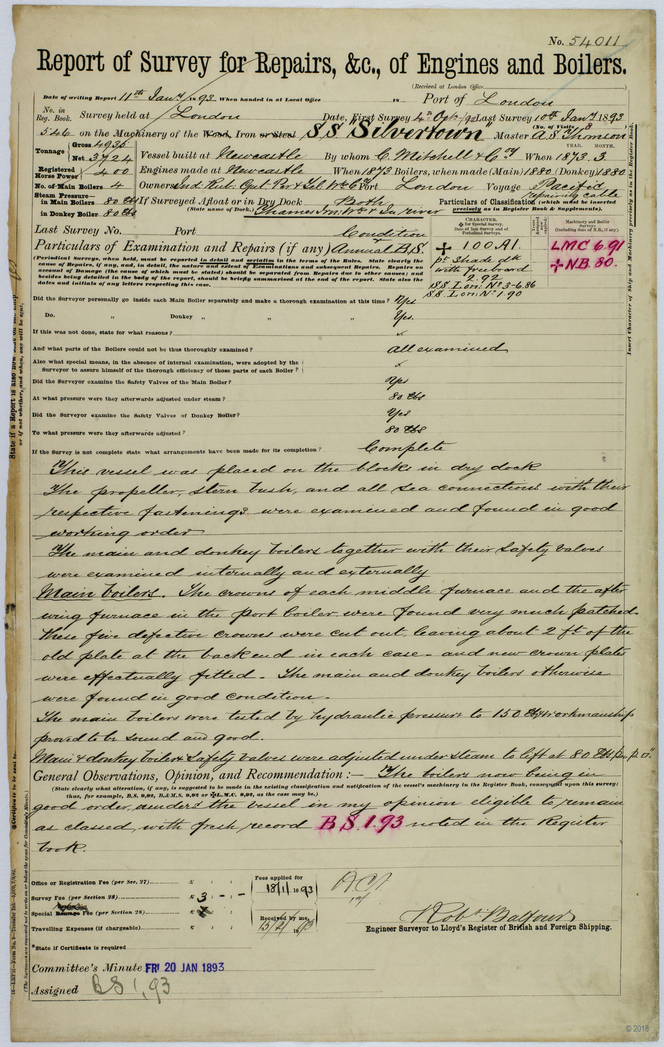 No. 54011
Report of Survey for Repairs, &c., of Engines and Boilers.
(Received at London Office
Date of writing Report 11th Jany 1893 When handed in at Local Office 18 Port of London
No. in Reg. Book. Survey held at London Date, First Survey 4th Oct /92 Last Survey 10th Jany 1893
(No. of Visits 3
546 on the Machinery of the Wood, Iron or Steel S.S. Silvertown Master A. S. Thomson
Tonnage Gross 4935 YEAR. MONTH.
Net 3724 Vessel built at Newcastle By whom C. Mitchell & Coy When 1873. 3
Registered Horse Power 400 Engines made at Newcastle When 1873 Boilers, when made (Main) 1880 (Donkey) 1880
No. of Main Boilers 4 Owners Ind. Rub. Gut. Per & Tel Wks Co Port London Voyage Pacific
Steam Pressure— in Main Boilers 80 lbs If Surveyed Afloat or in Dry Dock Both
in Donkey Boiler 80 lbs (State name of Dock.) Thames Iron Wks & In river
laying cable
Particulars of Classification (which must be inserted precisely as in Register Book & Supplements).
Last Survey No. Port
CHARACTER. Machinery and Boiler Surveys
Condition
Particulars of Examination and Repairs (if any) Annual B.S.
100 A1.
pt Shade dk
with freeboard
2.92
SS Lon: No 3-6.86
SS Lon: No 1.90
LMC 6.91
N.B. 80.
(Periodical Surveys, when held, must be reported in detail and seriatim in the terms of the Rules. State clearly the
Cause of Repairs, if any, and, in detail, the nature and extent of Examinations and subsequent Repairs. Repairs on
account of Damage (the cause of which must be stated) should be separated from Repairs due to other causes; and
besides being detailed in the body of the report, should be briefly summarised at the end of the report. State also the
dates and initials of any letters respecting this case.
Did the Surveyor personally go inside each Main Boiler separately and make a thorough examination at this time? Yes
Do. „ Donkey „ „ „ Yes.
If this was not done, state for what reasons?
And what parts of the Boilers could not be thoroughly examined? All examined
Also what special means, in the absence of internal examination, were adopted by the
Surveyor to assure himself of the thorough efficiency of those parts of each Boiler?
Did the Surveyor examine the Safety Valves of the Main Boiler? Yes
At what pressure were they afterwards adjusted under steam? 80 lbs
Did the Surveyor examine the Safety Valves of Donkey Boiler? Yes
To what pressure were they afterwards adjusted? 80 lbs
If the Survey is not complete state what arrangements have been made for its completion? Complete
This vessel was placed on the blocks in dry dock
The propeller, stern bush, and all sea connections with their
respective fastenings, were examined and found in good
working order
The main and donkey boilers together with their Safety valves
were examined internally and externally
Main boilers. The crowns of each middle furnace and the after
wing furnace in the port boiler were found very much patched.
These five defective crowns were cut out, leaving about 2 ft of the
old plate at the back end in each case - and new crown plates
were effectually fitted. The main and donkey boilers otherwise
were found in good condition.
The main boilers were tested by hydraulic pressure to 150 lbs & workmanship
proved to be sound and good.
Main & donkey boilers Safety Valves were adjusted under steam to lift at 80 lbs per □"
General Observations, Opinion, and Recommendation:— The boilers now being in
(State clearly what alteration, if any, is suggested to be made in the existing classification and notification of the vessel's machinery in the Register Book, consequent upon this survey:
thus, for example, B.S. 9,91, B.&M.S. 9,91 or L.M.C. 9,91, as the case may be.)
good order, renders the vessel in my opinion eligible to remain
as classed, with fresh record B.S. 1.93 noted in the Register
book.
Office or Registration Fee (per Sec. 27)
Survey Fee (per Section 28) £ 3 : - : -
Special Damage Fee (per Section 28)
Travelling Expenses (if chargeable)
Fees applied for 18/1/1893
Received by me,
*State if Certificate is required
Robt Balfour
Engineer Surveyor to Lloyd's Register of British and Foreign Shipping.
Committee's Minute FRI 20 JAN 1893
Assigned BS 1,93
© 2018